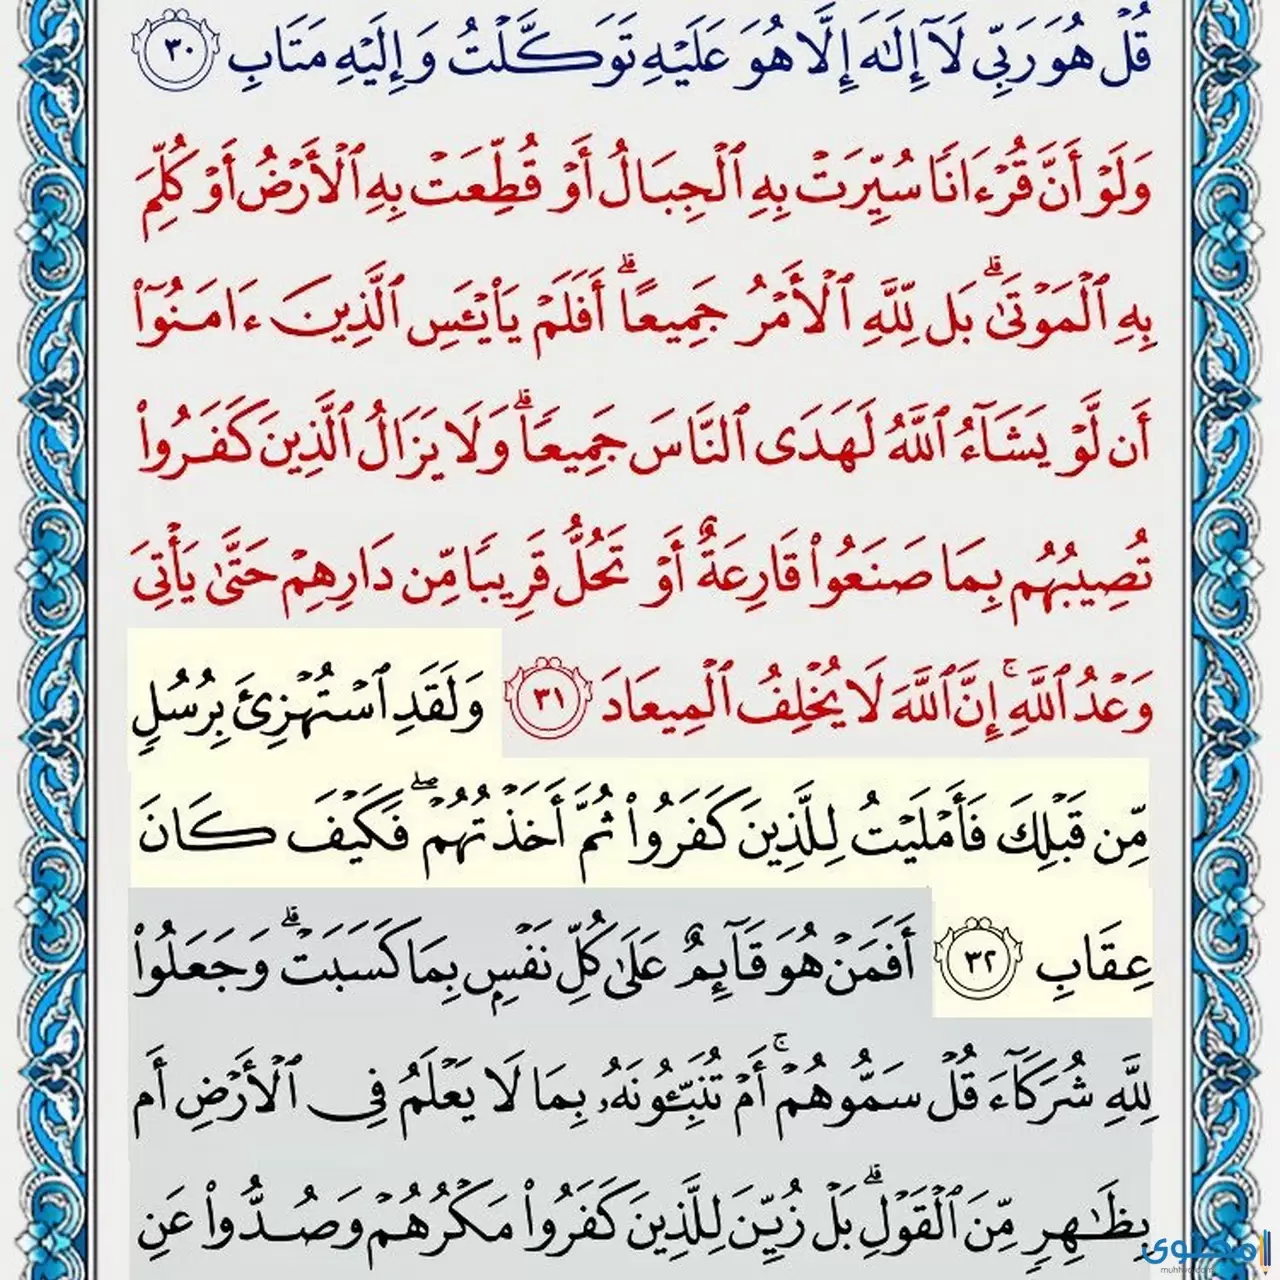 قُلْ هُوَ رَبِّي لَآ إِلَٰهَ إِلَّا هُوَ عَلَيْهِ تَوَكَّلْتُ وَإِلَيْهِ مَتَابِ ٣٠
وَلَوْ أَنَّ قُرْءَانًا سُيِّرَتْ بِهِ ٱلْجِبَالُ أَوْ قُطِّعَتْ بِهِ ٱلْأَرْضُ أَوْ كُلِّمَ
بِهِ ٱلْمَوْتَىٰۗ بَل لِّلَّهِ ٱلْأَمْرُ جَمِيعًاۗ أَفَلَمْ يَا۟يْـَٔسِ ٱلَّذِينَ ءَامَنُوٓا۟
أَن لَّوْ يَشَآءُ ٱللَّهُ لَهَدَى ٱلنَّاسَ جَمِيعًاۗ وَلَا يَزَالُ ٱلَّذِينَ كَفَرُوا۟
تُصِيبُهُم بِمَا صَنَعُوا۟ قَارِعَةٌ أَوْ تَحُلُّ قَرِيبًا مِّن دَارِهِمْ حَتَّىٰ يَأْتِىَ
وَعْدُ ٱللَّهِۚ إِنَّ ٱللَّهَ لَا يُخْلِفُ ٱلْمِيعَادَ ٣١ وَلَقَدِ ٱسْتُهْزِئَ بِرُسُلٍ
مِّن قَبْلِكَ فَأَمْلَيْتُ لِلَّذِينَ كَفَرُوا۟ ثُمَّ أَخَذْتُهُمْۖ فَكَيْفَ كَانَ
عِقَابِ ٣٢ أَفَمَنْ هُوَ قَآئِمٌ عَلَىٰ كُلِّ نَفْسٍۭ بِمَا كَسَبَتْۗ وَجَعَلُوا۟
لِلَّهِ شُرَكَآءَ قُلْ سَمُّوهُمْۚ أَمْ تُنَبِّـُٔونَهُۥ بِمَا لَا يَعْلَمُ فِى ٱلْأَرْضِ أَم
بِظَٰهِرٍ مِّنَ ٱلْقَوْلِۗ بَلْ زُيِّنَ لِلَّذِينَ كَفَرُوا۟ مَكْرُهُمْ وَصُدُّوا۟ عَنِ
محتوى